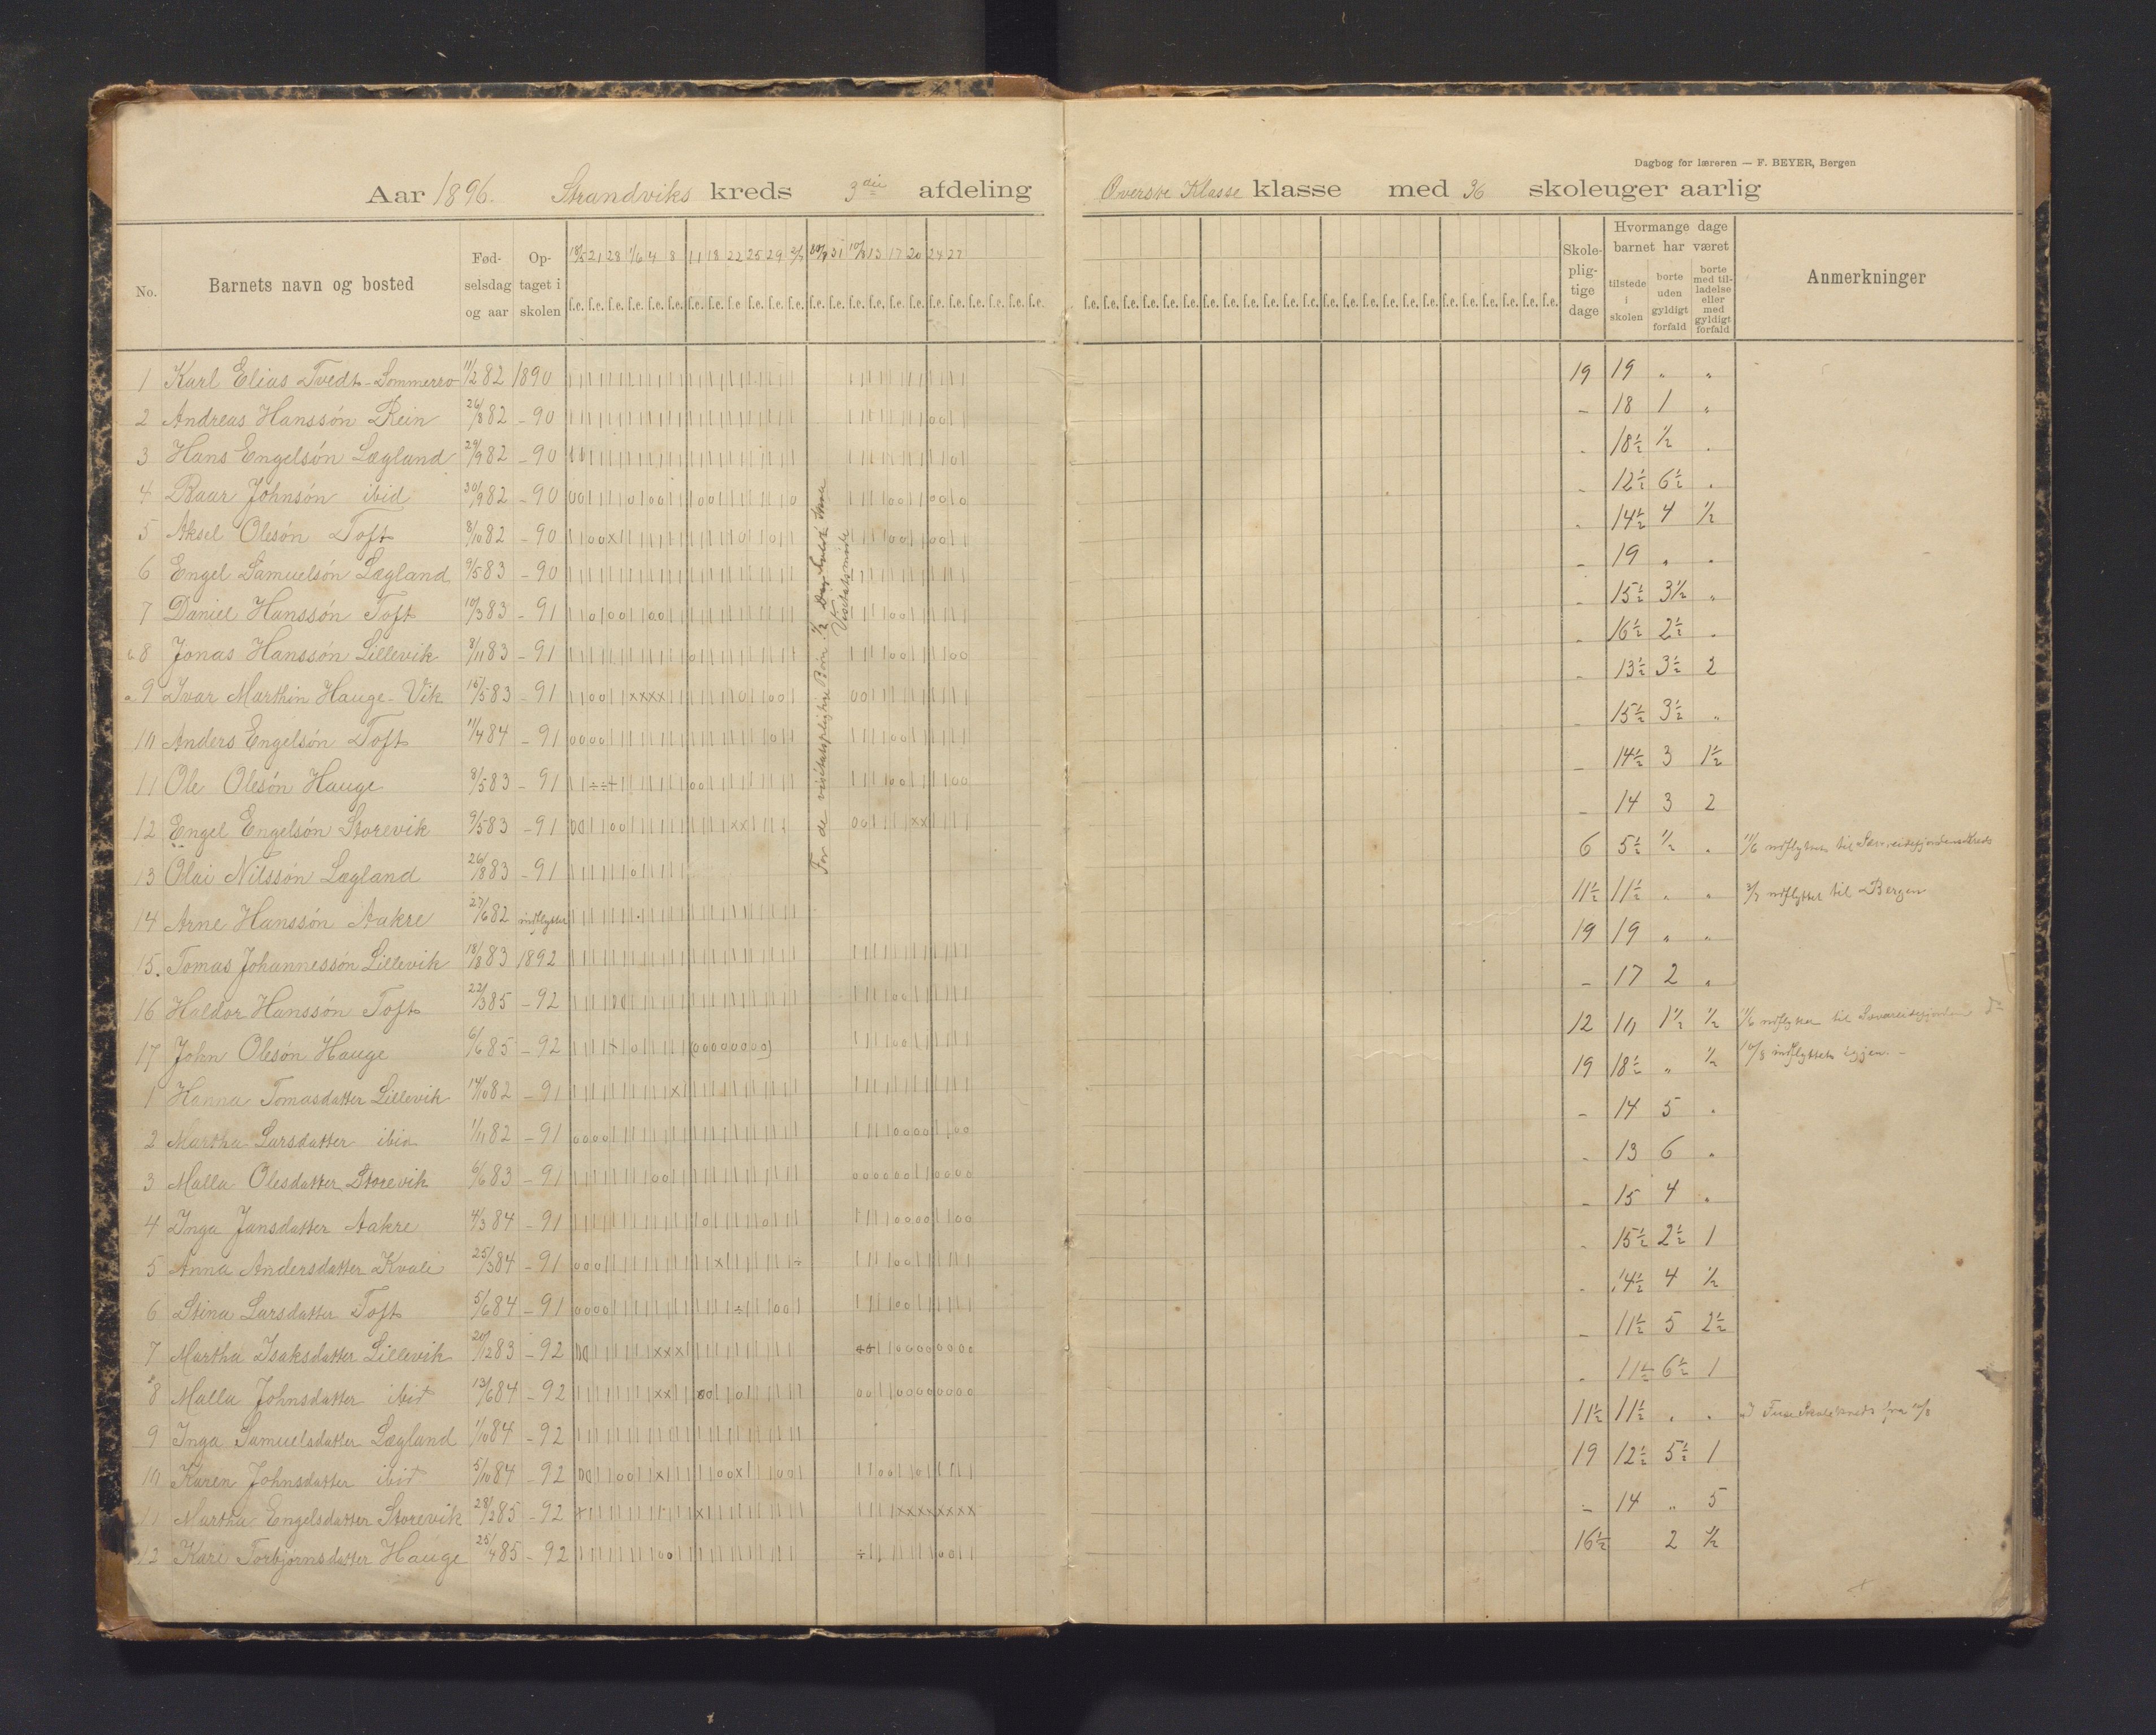 Dagbog for læreren — F. BEYER, Bergen
Aar 1896. Strandviks kreds 3die afdeling Øverste Klasse klasse med 36 skoleuger aarlig
No. Barnets navn og bosted Fødselsdag og aar Optaget i skolen Skolepligtige dage Hvormange dage barnet har været tilstede i skolen borte uden gyldigt forfald borte med tilladelse eller med gyldigt forfald Anmerkninger
18/5 21 28 1/6 4 8 11 18 22 25 29 2/7 31 10/8 13 17 20 24 27
f.e. f.e. f.e. f.e. f.e. f.e. f.e. f.e. f.e. f.e. f.e. f.e. f.e. f.e. f.e. f.e. f.e. f.e. f.e. f.e. f.e. f.e. f.e. f.e.
1 Karl Elias Tvedt-Sommerro 11/2 82 1890 19 19 " "
2 Andreas Hanssøn Rein 26/8 82 - 90 - 18 1 "
3 Hans Engelsøn Lægland 29/9 82 - 90 18½ ½ "
4 Baar Johnsøn ibid 30/9 82 - 90 12½ 6½ "
5 Aksel Olesøn Toft 8/10 82 - 90 14½ 4 ½
6 Engel Samuelsøn Lægland 9/5 83 - 90 - 19 " "
7 Daniel Hanssøn Toft 10/3 83 - 91 - 15½ 3½ "
8 Jonas Hanssøn Lillevik 8/11 83 - 91 16½ 2½ "
9 Ivar Marthin Hauge-Vik 15/5 83 - 91 - 13½ 3½ 2
10 Anders Engelsøn Toft 11/4 84 - 91 - 15½ 3½ "
11 Ole Olesøn Hauge 8/5 83 - 91 - 14½ 3 1½
12 Engel Engelsøn Storevik 9/5 83 - 91 - 14 3 2
13 Olai Nilssøn Lægland 26/8 83 - 91 6 5½ ½ " 11/6 udflyttet til
14 Arne Hanssøn Aakre 27/6 82 indflyttet 11½ 11½ " " 2/7 udflyttet til Bergen
15. Tomas Johannessøn Lillevik 18/8 83 1892 19 19 " "
16 Haldor Hanssøn Toft 22/3 85 - 92 - 17 2 "
17 John Olesøn Hauge 6/6 85 - 92 12 10 1½ ½ 11/6 udflyttet til
10/8 indflyttet igjen. -
1 Hanna Tomasdatter Lillevik 14/10 82 - 91 19 18½ " ½
2 Martha Larsdatter ibid 1/11 82 - 91 - 14 5 "
3 Malla Olesdatter Storevik 6/6 83 - 91 - 13 6 "
4 Inga Jansdatter Aakre 4/3 84 - 91 - 15 4 "
5 Anna Andersdatter Kvale 25/3 84 - 91 15½ 2½ 1
6 Stina Larsdatter Toft 5/6 84 - 91 14½ 4 ½
7 Martha Isaksdatter Lillevik 20/12 83 - 92 - 11½ 5 2½
8 Malla Johnsdatter ibid 13/6 84 - 92 11½ 6½ 1
9 Inga Samuelsdatter Lægland 1/10 84 - 92 11½ 11½ " " Fuse Skolekreds fra 10/8
10 Karen Johnsdatter ibid 5/10 84 - 92 19 12½ 5½ 1
11 Martha Engelsdatter Storevik 28/2 85 - 92 - 14 " 5
12 Kari Torbjørnsdatter Hauge 25/4 85 - 92 16½ 2 ½
For de visitatspligtige Børn ½ Dag holdt Skole
Visitatsmøde